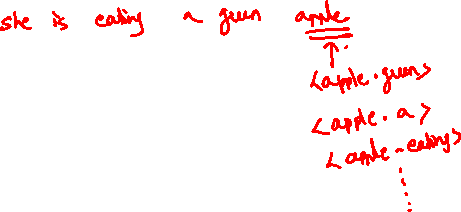 she is eating a green apple.
<apple · green>
<apple · a>
<apple · eating>